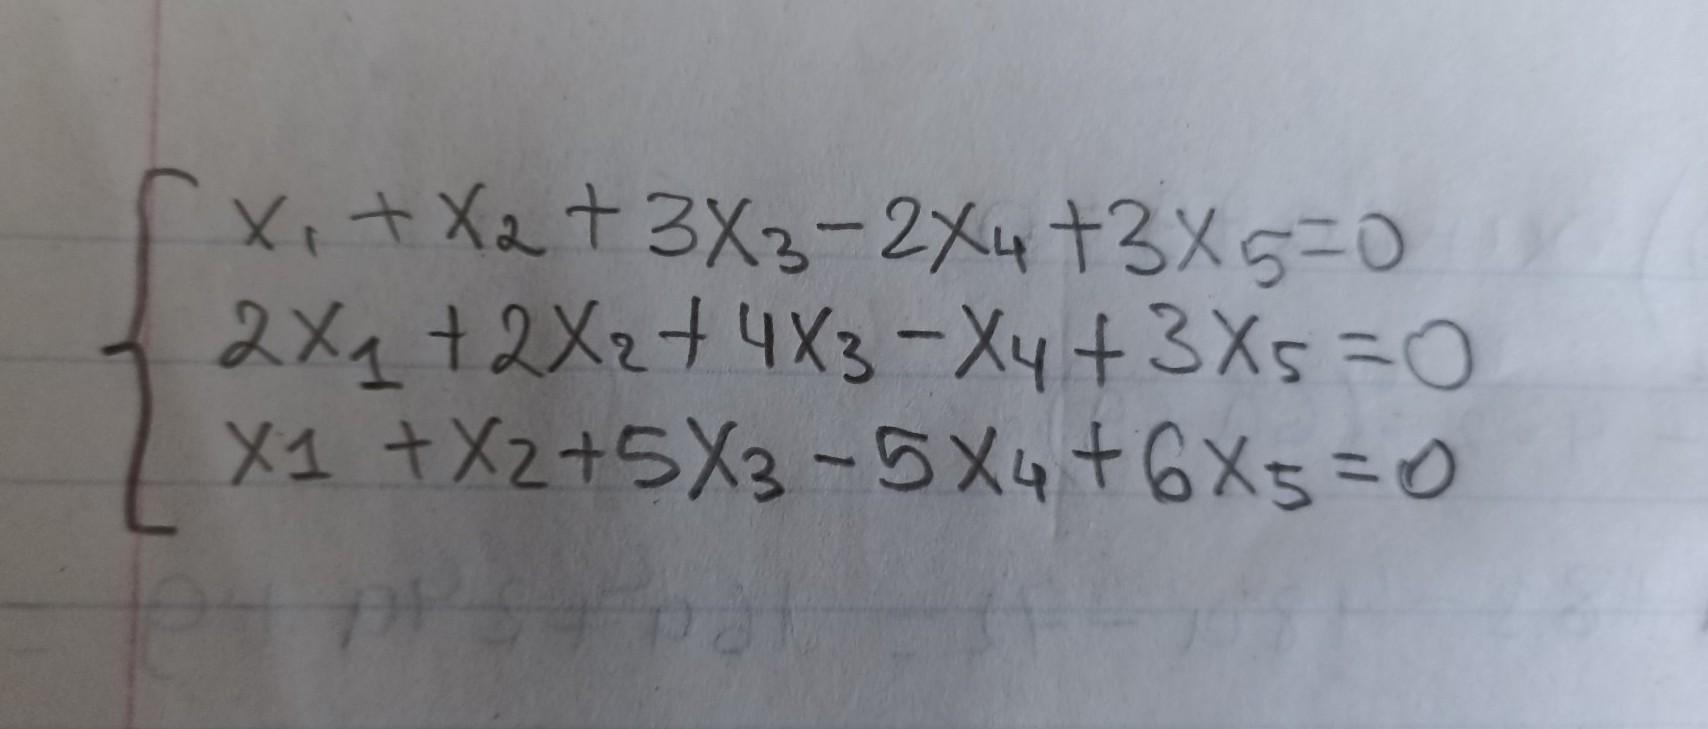 x₁ + x₂ + 3x₃ - 2x₄ + 3x₅ = 0
2x₁ + 2x₂ + 4x₃ - x₄ + 3x₅ = 0
x1 + x₂ + 5x₃ - 5x₄ + 6x₅ = 0